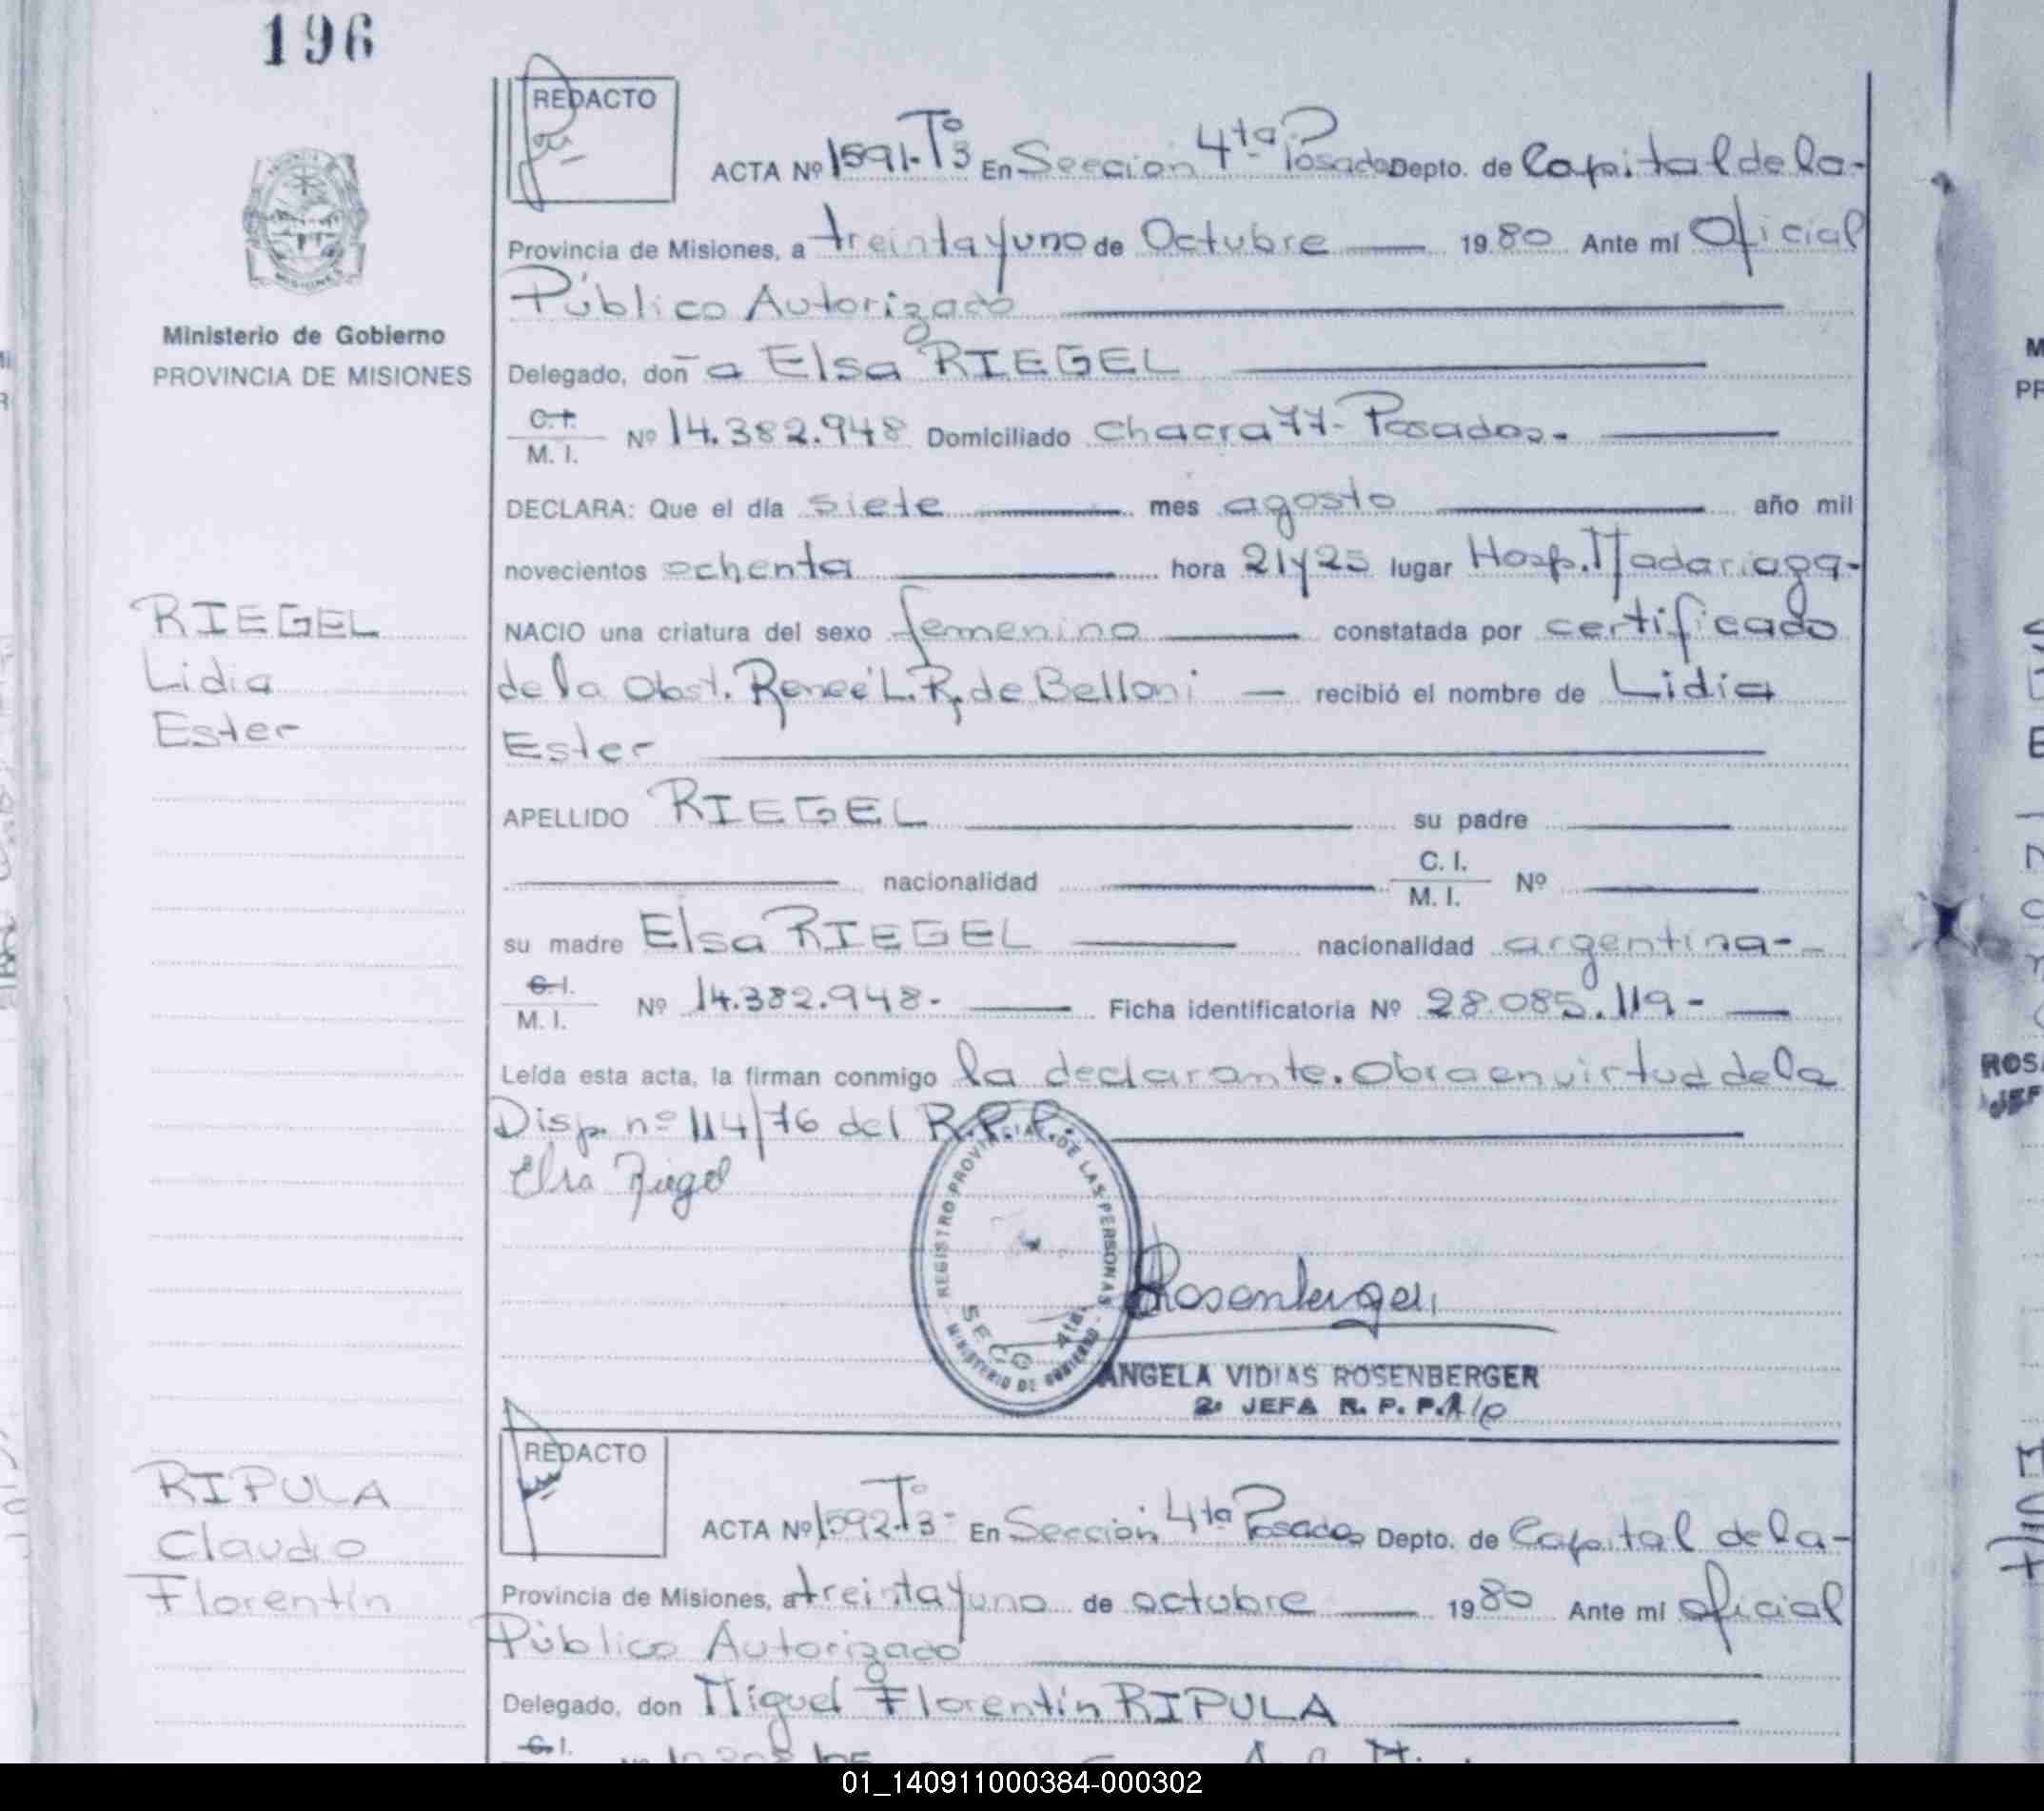 196
REDACTO
ACTA Nº 1591-Tº3 En Sección 4ta Posadas Depto. de Capital de la-
Provincia de Misiones, a treinta y uno de Octubre 1980 Ante mí Oficial
Público Autorizado
Ministerio de Gobierno
PROVINCIA DE MISIONES
Delegado, don̄a Elsa RIEGEL
C.I.
M. I. Nº 14.382.948 Domiciliado chacra 77- Posadas.-
DECLARA: Que el día siete mes agosto año mil
novecientos ochenta hora 21y25 lugar Hosp. Madariaga-
RIEGEL
Lidia
Ester
NACIO una criatura del sexo femenino constatada por certificado
de la Obst. Reneé L.R. de Belloni — recibió el nombre de Lidia
Ester
APELLIDO RIEGEL su padre
nacionalidad C. I.
M. I. Nº
su madre Elsa RIEGEL nacionalidad argentina--
C.I.
M. I. Nº 14.382.948- Ficha identificatoria Nº 28.085.119-
Leída esta acta, la firman conmigo la declarante. Obra en virtud de la
Disp. nº 114/76 del R.P.P.
Elsa Riegel
REGISTRO PROVINCIAL DE LAS PERSONAS
SECC 4ta.
MINISTERIO DE GOBIERNO
Rosenberger
ANGELA VIDIAS ROSENBERGER
2ª JEFA R. P. P.
REDACTO
RIPULA
Claudio
Florentín
ACTA Nº 1592-Tº3- En Sección 4ta Posadas Depto. de Capital de la-
Provincia de Misiones, a treinta y uno de octubre 1980 Ante mí oficial
Público Autorizado
Delegado, don Miguel Florentín RIPULA
C.I.
ROSA
JEF
01_140911000384-000302